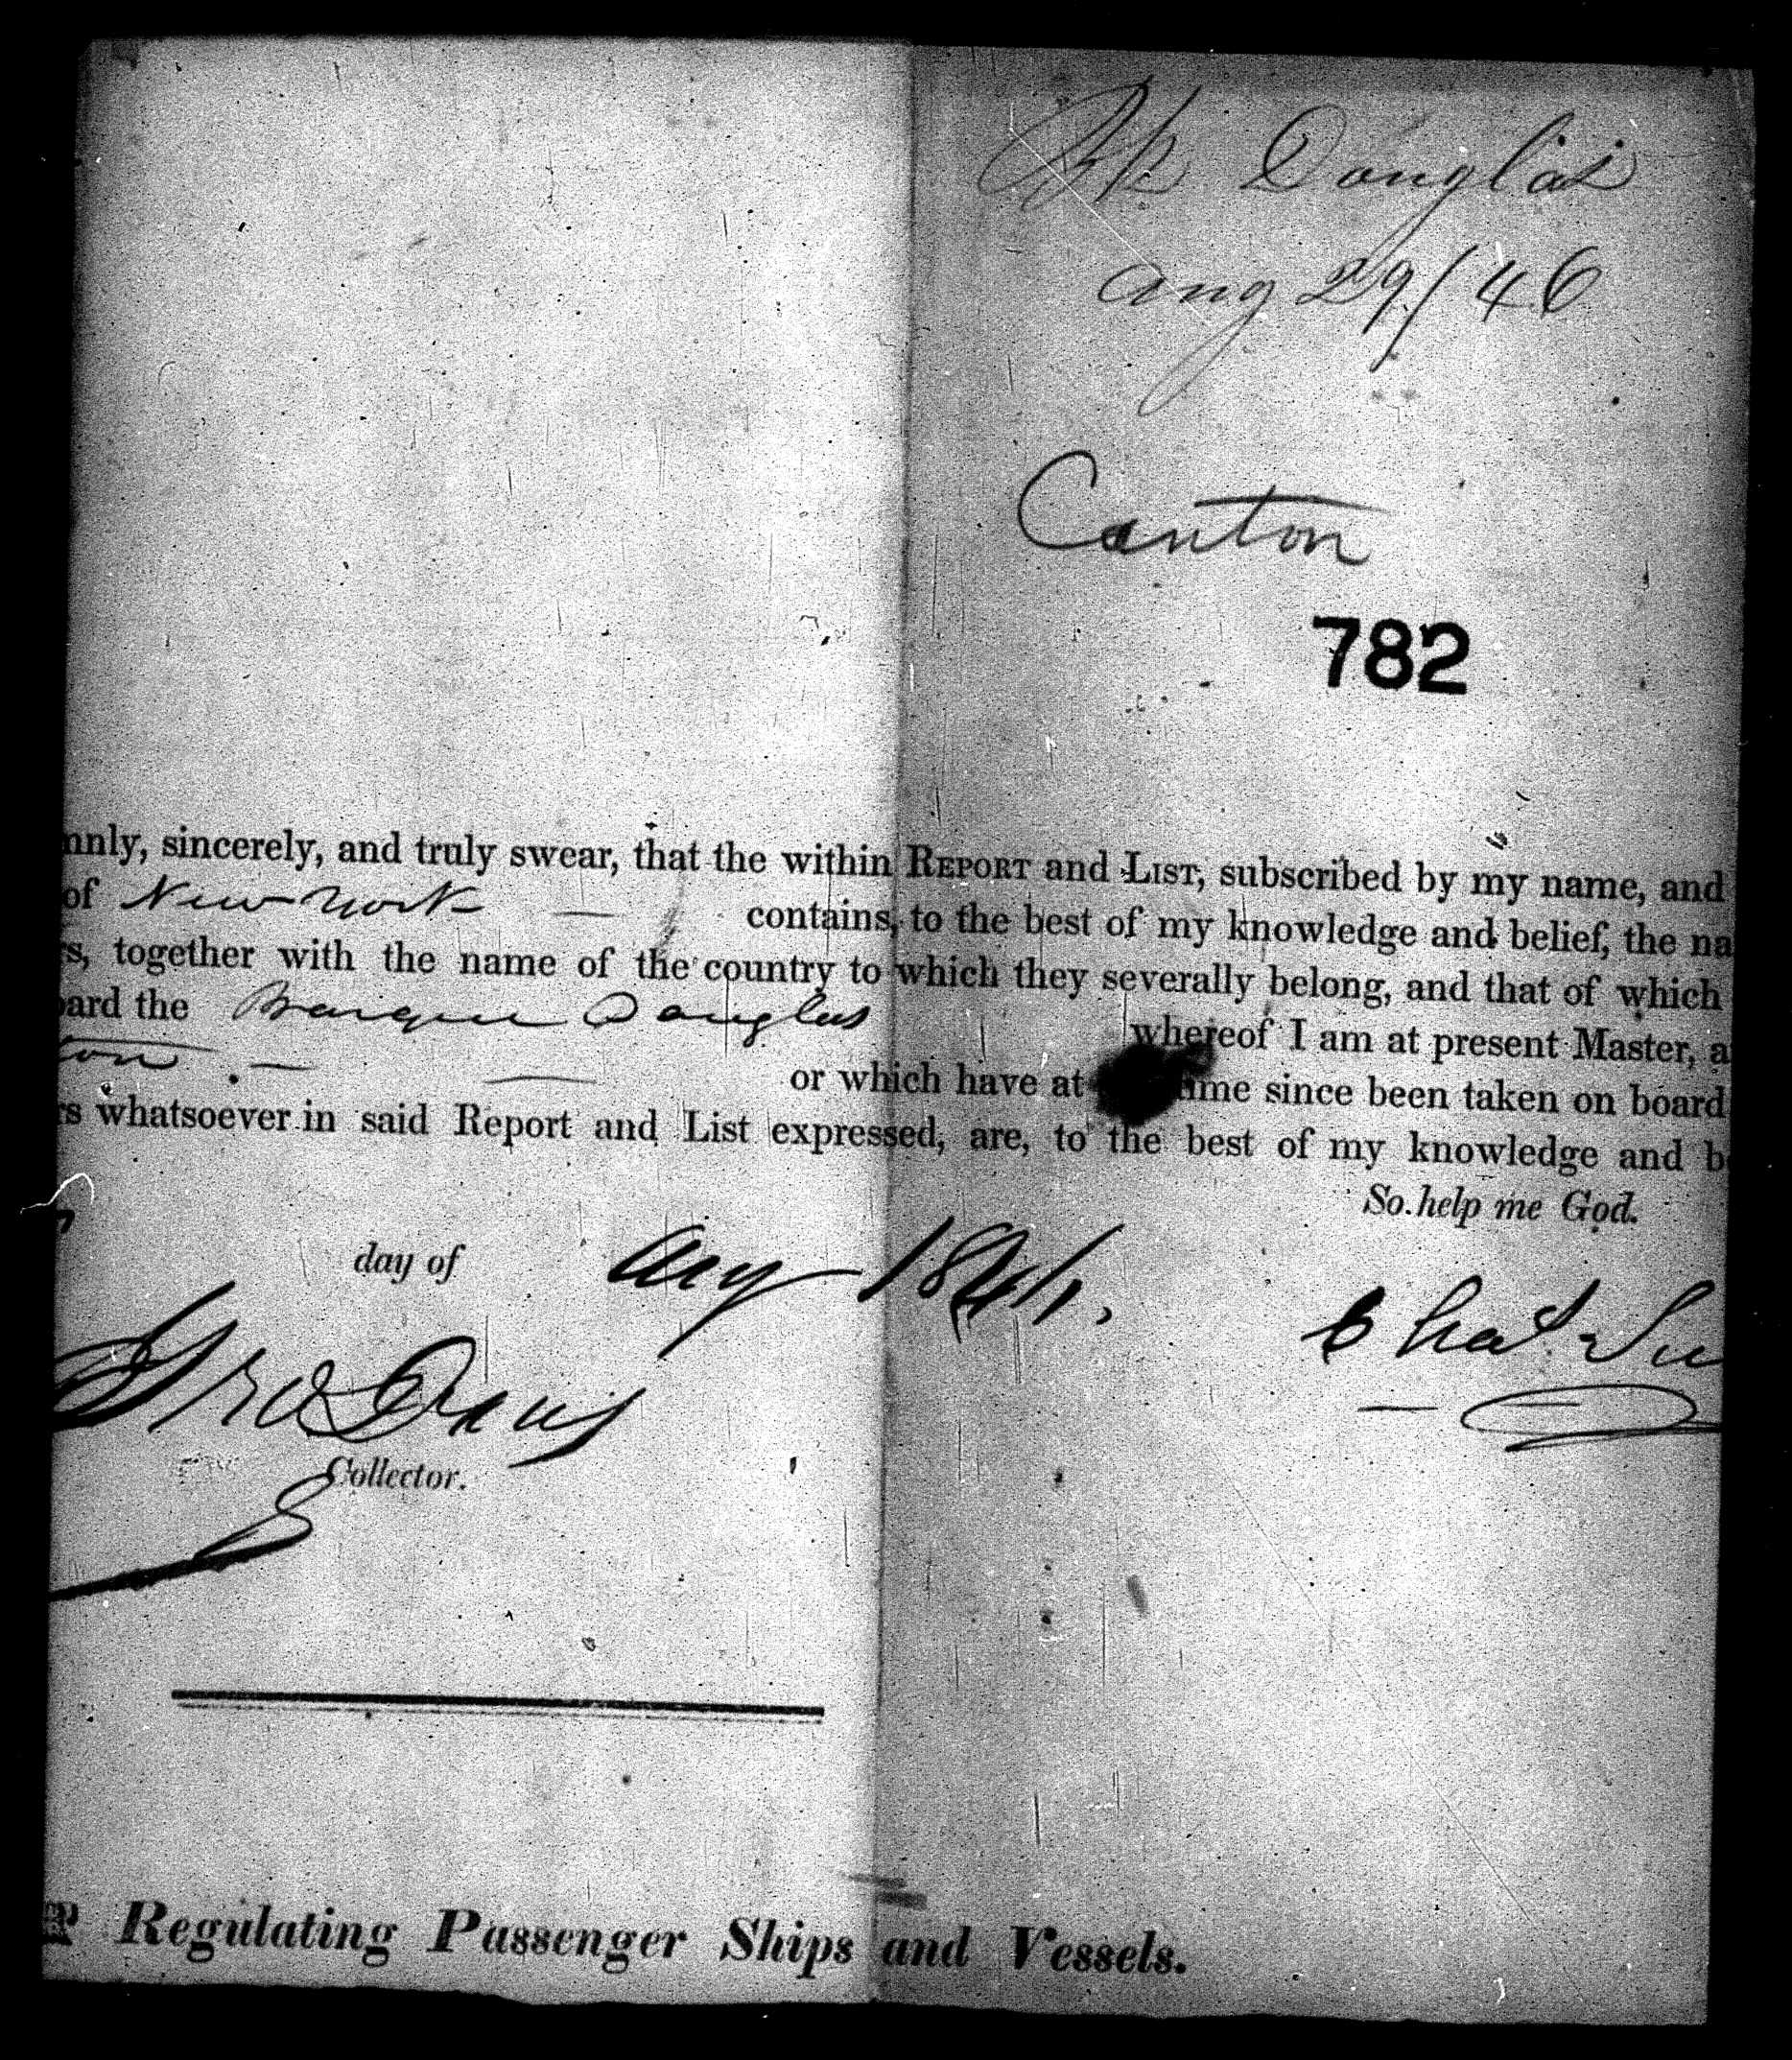 Bk Douglas
Aug 29/46
Canton
782
nnly, sincerely, and truly swear, that the within REPORT and LIST, subscribed by my name, and
of New York — contains, to the best of my knowledge and belief, the na
s, together with the name of the country to which they severally belong, and that of which
oard the Barque Douglas whereof I am at present Master, a
ton. — — or which have at time since been taken on board
rs whatsoever in said Report and List expressed, are, to the best of my knowledge and b
So help me God.
day of Aug 1846.
Collector.
Regulating Passenger Ships and Vessels.